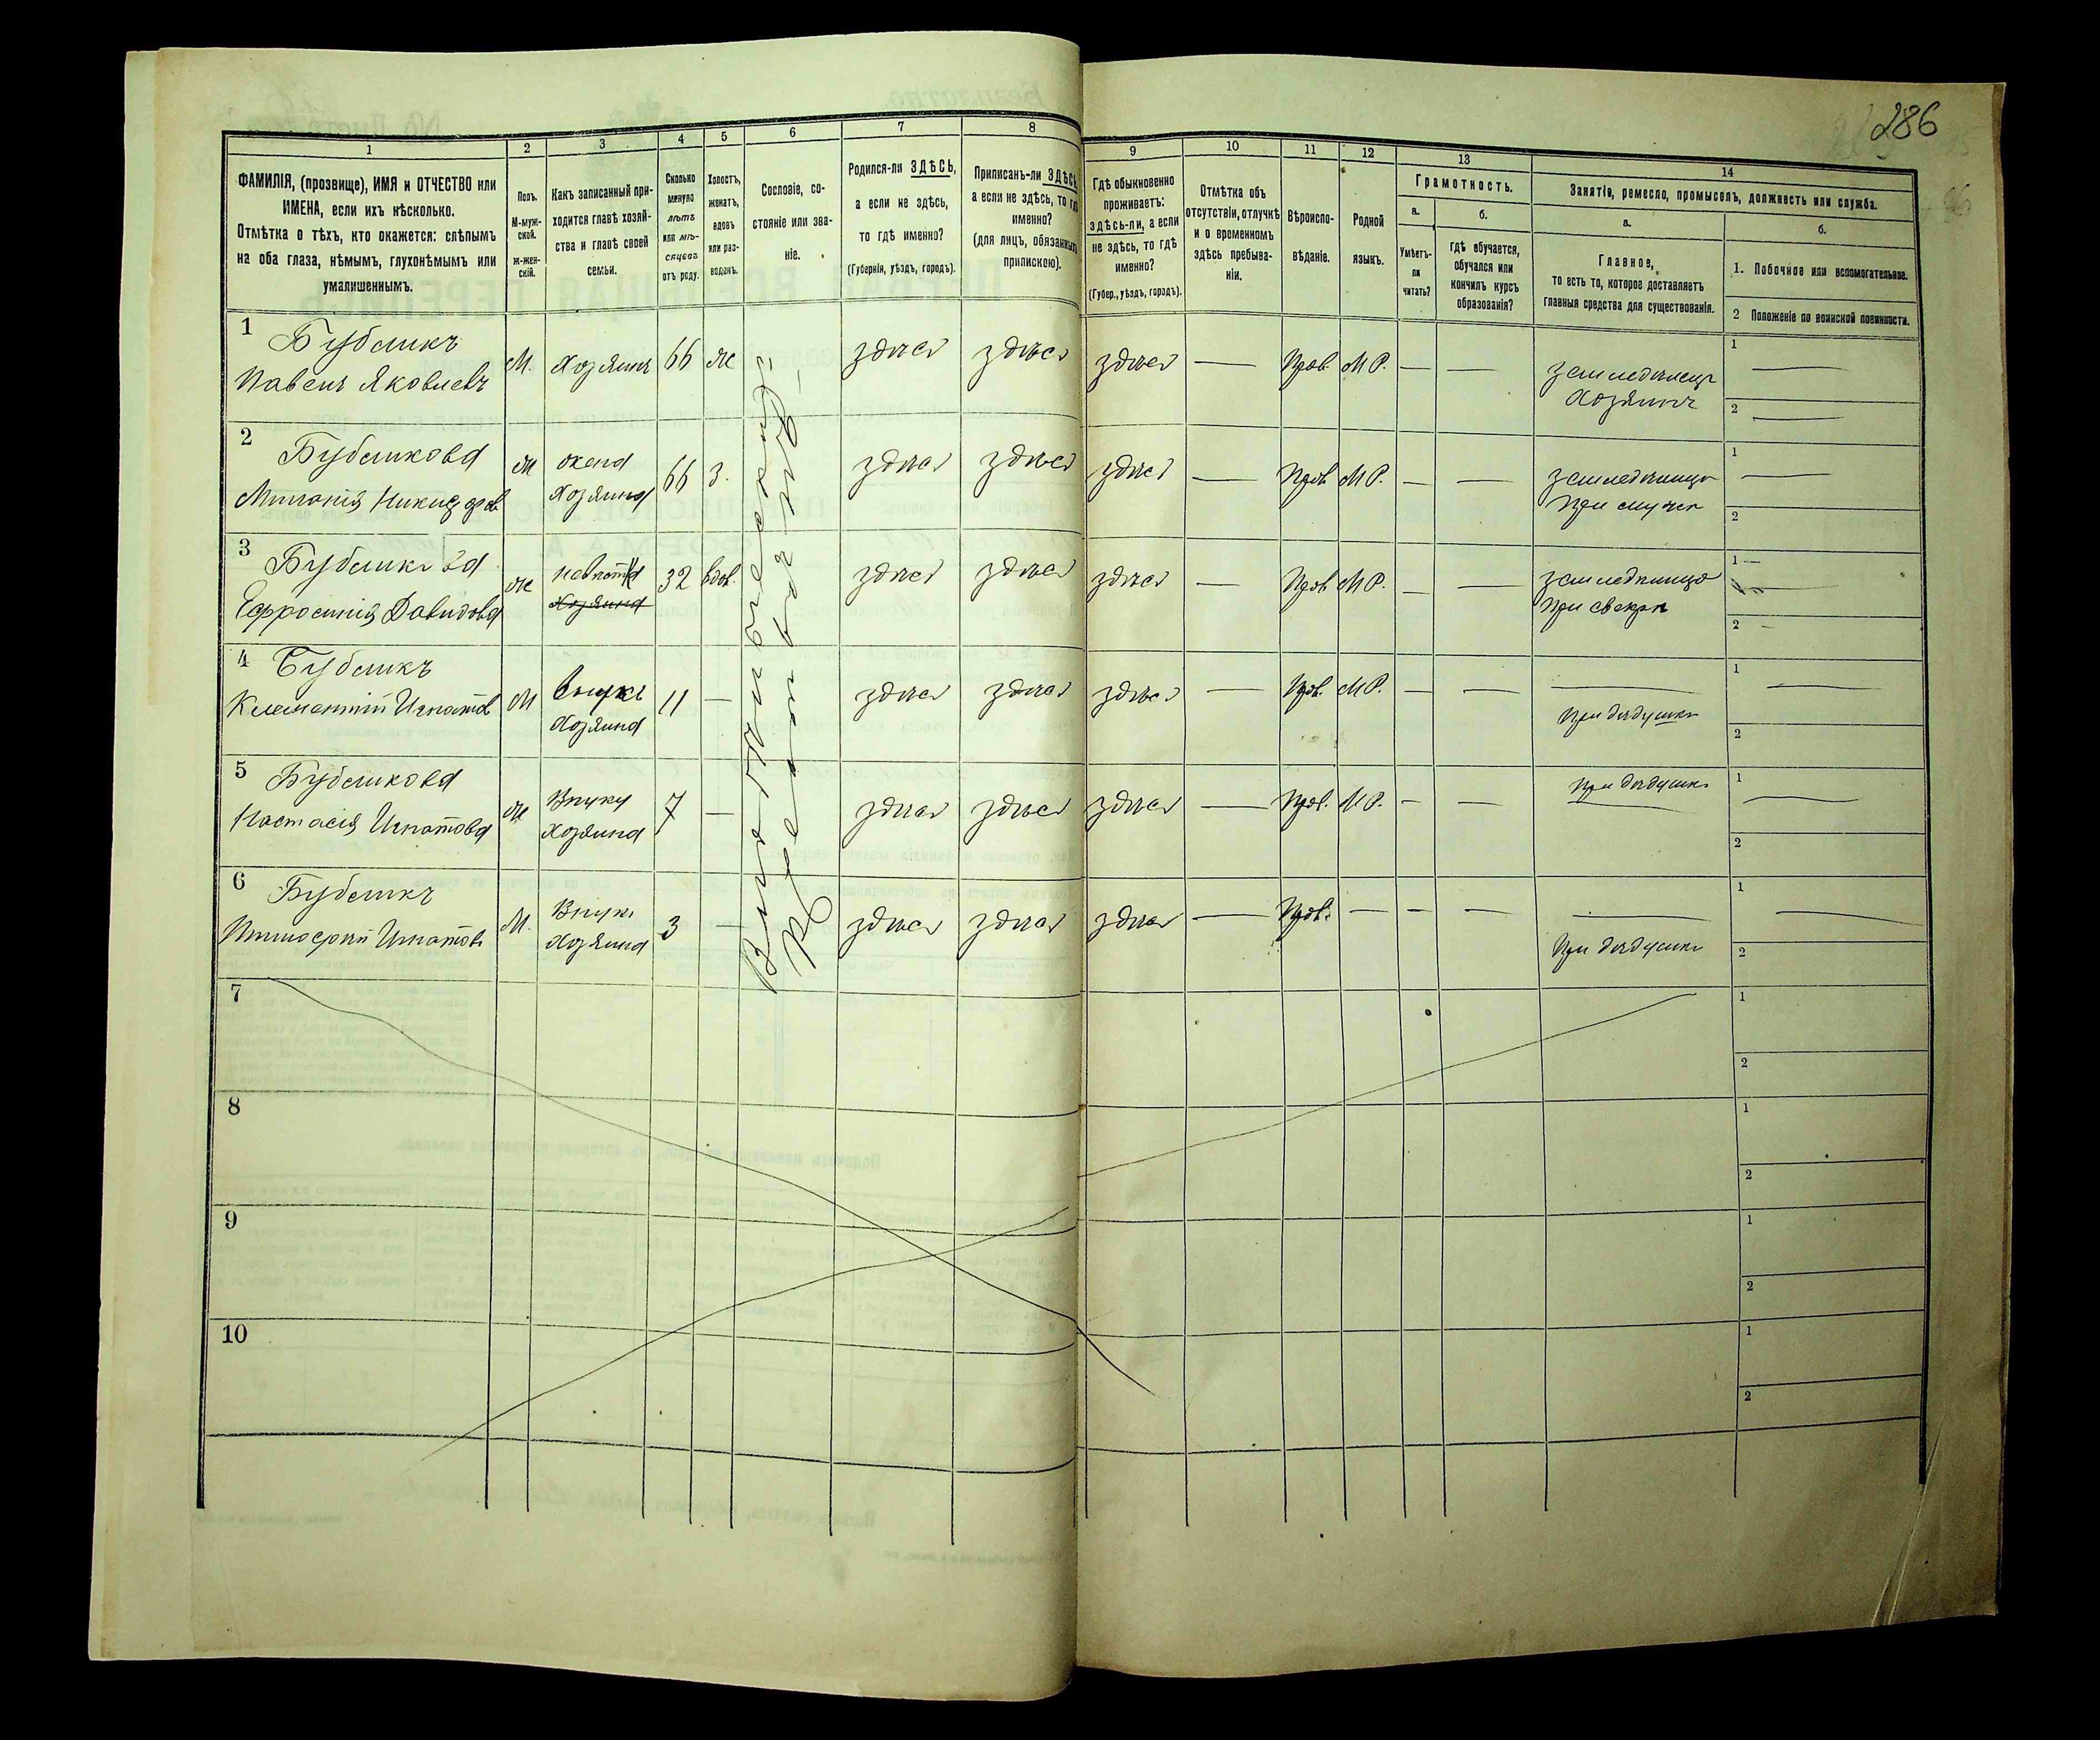 286
1
2
3
4
5
6
7
8
9
10
11
12
13
14
ФАМИЛІЯ, (прозвище), ИМЯ и ОТЧЕСТВО или
ИМЕНА, если ихъ нѣсколько.
Отмѣтка о тѣхъ, кто окажется: слѣпымъ
на оба глаза, нѣмымъ, глухонѣмымъ или
умалишеннымъ.
Полъ.
М-муж-
ской.
Ж-жен-
скій.
Какъ записанный при-
ходится главѣ хозяй-
ства и главѣ своей
семьи.
Сколько
минуло
лѣтъ
или мѣ-
сяцевъ
отъ роду.
Холостъ,
женатъ,
вдовъ
или раз-
веденъ.
Сословіе, со-
стояніе или зва-
ніе.
Родился-ли ЗДѢСЬ,
а если не здѣсь,
то гдѣ именно?
(Губернія, уѣздъ, городъ).
Приписанъ-ли ЗДѢСЬ
а если не здѣсь, то гдѣ
именно?
(для лицъ, обязанныхъ
припискою).
Гдѣ обыкновенно
проживаетъ:
здѣсь-ли, а если
не здѣсь, то гдѣ
именно?
(Губер., уѣздъ, городъ).
Отмѣтка объ
отсутствіи, отлучкѣ
и о временномъ
здѣсь пребыва-
ніи.
Вѣроиспо-
вѣданіе.
Родной
языкъ.
Грамотность.
а.
Умѣетъ-
ли
читать?
б.
гдѣ обучается,
обучался или
кончилъ курсъ
образованія?
Занятіе, ремесло, промыселъ, должность или служба.
а.
Главное,
то есть то, которое доставляетъ
главныя средства для существованія.
б.
1. Побочное или вспомогательное.
2 Положеніе по воинской повинности.
1 Бубликъ
Павелъ Яковлевъ
М.
Хозяинъ
66
ж
здѣсь
здѣсь
здѣсь
—
Прав.
М Р.
—
—
земледѣлецъ
Хозяинъ
1 —
2 —
2 Бубликова
Миланія Никифоров
ж
жена
Хозяина
66
З.
здѣсь
здѣсь
здѣсь
—
Прав
М Р.
—
—
земледѣлица
При мужѣ
1 —
2
3 Бубликова
Ефросинія Давидова
ж
невѣстка
Хозяина
32
вдов.
здѣсь
здѣсь
здѣсь
—
Прав
М Р.
—
—
земледѣлица
При свекрѣ
1 —
2 —
4 Бубликъ
Клементій Игнатов
М
Внукъ
Хозяина
11
—
здѣсь
здѣсь
здѣсь
—
Прав.
М Р.
—
—
При дѣдушкѣ
1 —
2
5 Бубликова
Настасія Игнатова
ж
Внука
Хозяина
7
—
здѣсь
здѣсь
здѣсь
—
Прав.
М Р.
—
—
При дѣдушкѣ
1 —
2
6 Бубликъ
Тимофей Игнатовъ
М.
Внукъ
Хозяина
3
—
здѣсь
здѣсь
здѣсь
—
Прав.
—
—
—
При дѣдушкѣ
1 —
2
7
1
2
8
1
2
9
1
2
10
1
2